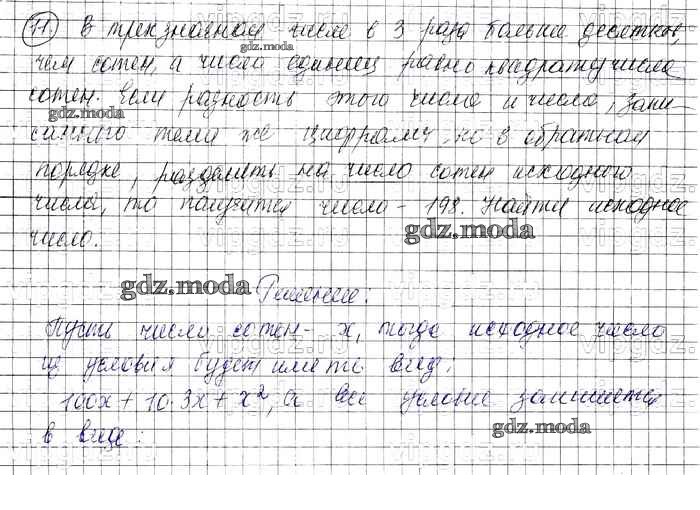 11. В трехзначном числе в 3 раза больше десятков,
gdz.moda
чем сотен, а число единиц равно квадрату числа
сотен. Если разность этого числа и числа, запи-
gdz.moda
санного теми же цифрами, но в обратном
порядке, разделить на число сотен исходного
числа, то получится число - 198. Найти исходное
gdz.moda
число.
gdz.moda
Решение:
Пусть число сотен - x, тогда исходное число
из условия будет иметь вид:
100x + 10·3x + x², а все условие запишется
gdz.moda
в виде: